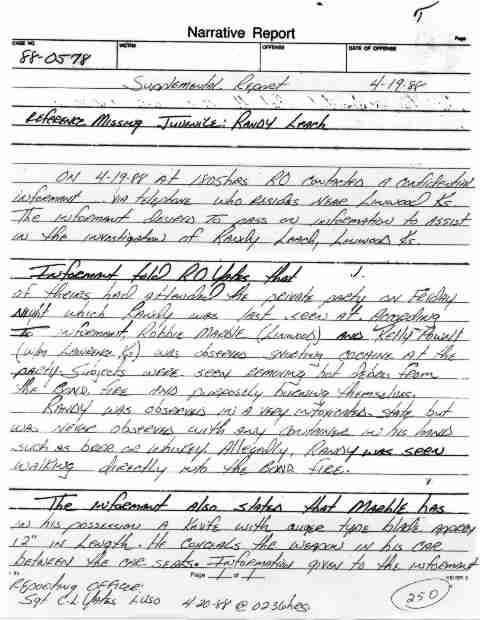 Narrative Report
Page
CASE NO
VICTIM
OFFENSE
DATE OF OFFENSE
88-0578
Supplemental Report 4-19-88
Reference Missing Juvenile: Randy Leach
ON 4-19-88 AT 1805hrs RO contacted a confidential
informant via telephone who resides near Linwood Ks
The informant desired to pass on information to assist
in the investigation of Randy Leach, Linwood Ks.
Informant told RO Yates that
of theirs had attended the private party on Friday
Night which Randy was last seen at. According
To informant, Robbie Marble (Linwood) and Kelly
( Lawrence Ks) was observed snorting cocaine at the
party. Subjects were seen removing hot from
the Bond fire and purposely burning themselves.
Randy was observed in a very intoxicated state but
was never observed with any container in his hand
such as beer or whiskey. Allegedly, Randy was seen
walking directly into the Bond fire.
The informant also stated that Marble has
in his possession a Knife with auger type blade approx
12" in Length. He conceals the weapon in his car
between the car seats. Information given to the informant
Page 1 of 1
Reporting Officer:
Sgt C-L Yates LVSO 4-20-88 @ 0236hrs
250